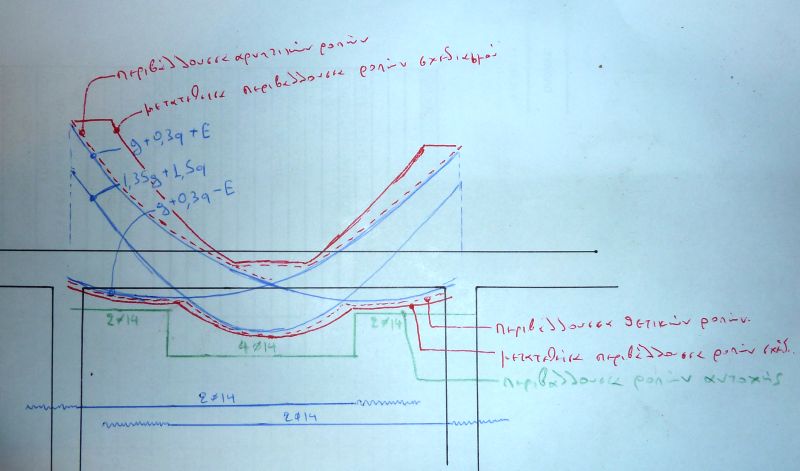 περιβάλλουσα αρνητικών ροπών
μετατεθείσα περιβάλλουσα ροπών σχεδιασμού
g+0,3q+E
1,35g+1,5q
g+0,3q-E
2Ø14
4Ø14
2Ø14
περιβάλλουσα θετικών ροπών.
μετατεθείσα περιβάλλουσα ροπών σχεδ.
περιβάλλουσα ροπών αντοχής
2Ø14
2Ø14